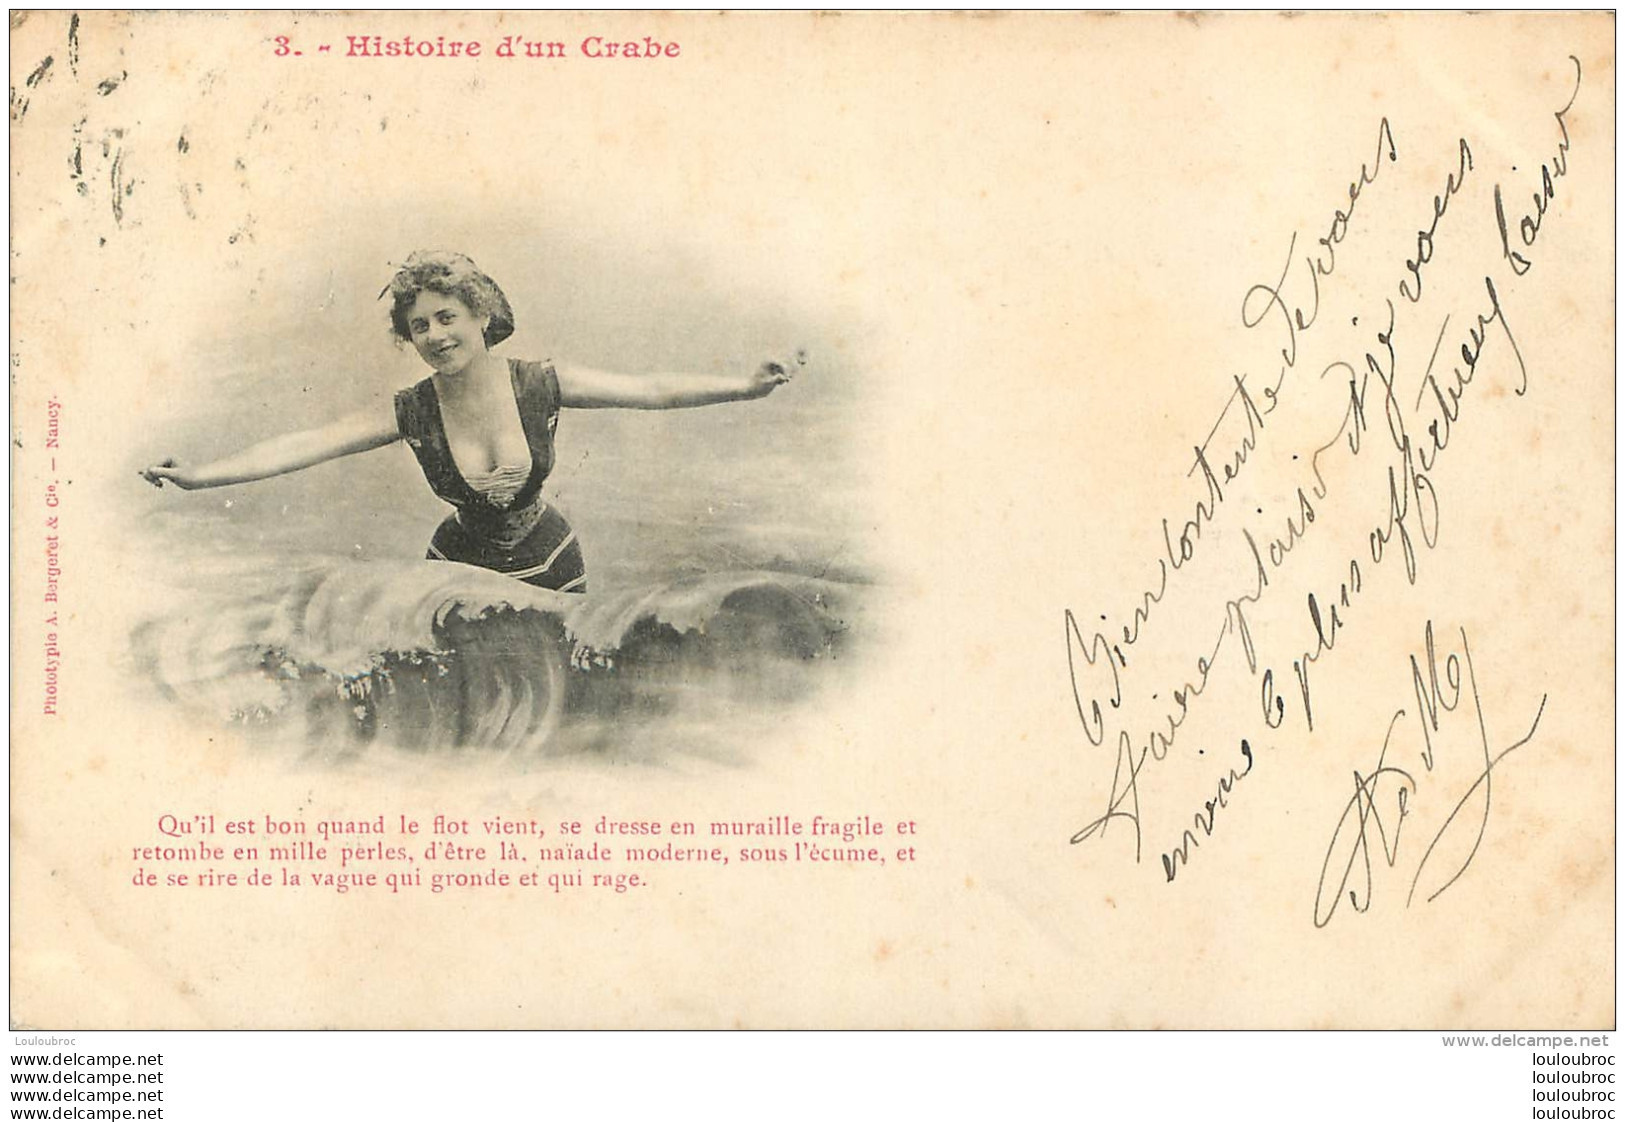 3. - Histoire d'un Crabe
Phototypie A. Bergeret & Cie. — Nancy.
Qu'il est bon quand le flot vient, se dresse en muraille fragile et
retombe en mille perles, d'être là, naïade moderne, sous l'écume, et
de se rire de la vague qui gronde et qui rage.
Bien contente de vous
faire plaisir et je vous
envoie le plus affectueux baiser
Louloubroc
www.delcampe.net
www.delcampe.net
louloubroc
www.delcampe.net
louloubroc
www.delcampe.net
louloubroc
www.delcampe.net
louloubroc